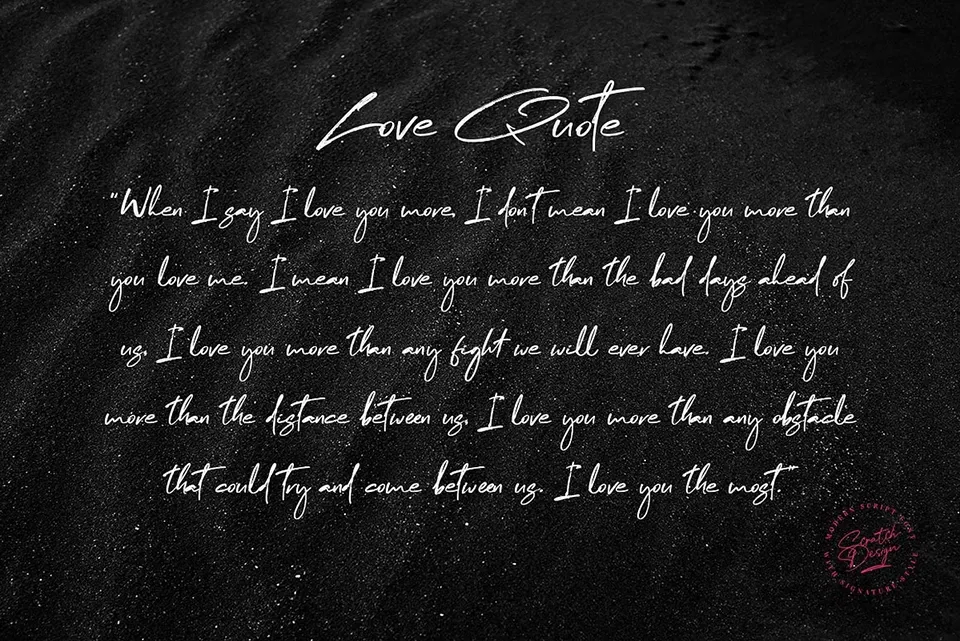 Love Quote
"When I say I love you more, I don't mean I love you more than
you love me. I mean I love you more than the bad days ahead of
us, I love you more than any fight we will ever have. I love you
more than the distance between us, I love you more than any obstacle
that could try and come between us. I love you the most."
MODERN SCRIPT FONT
Scratch
Design
WITH SIGNATURE STYLE